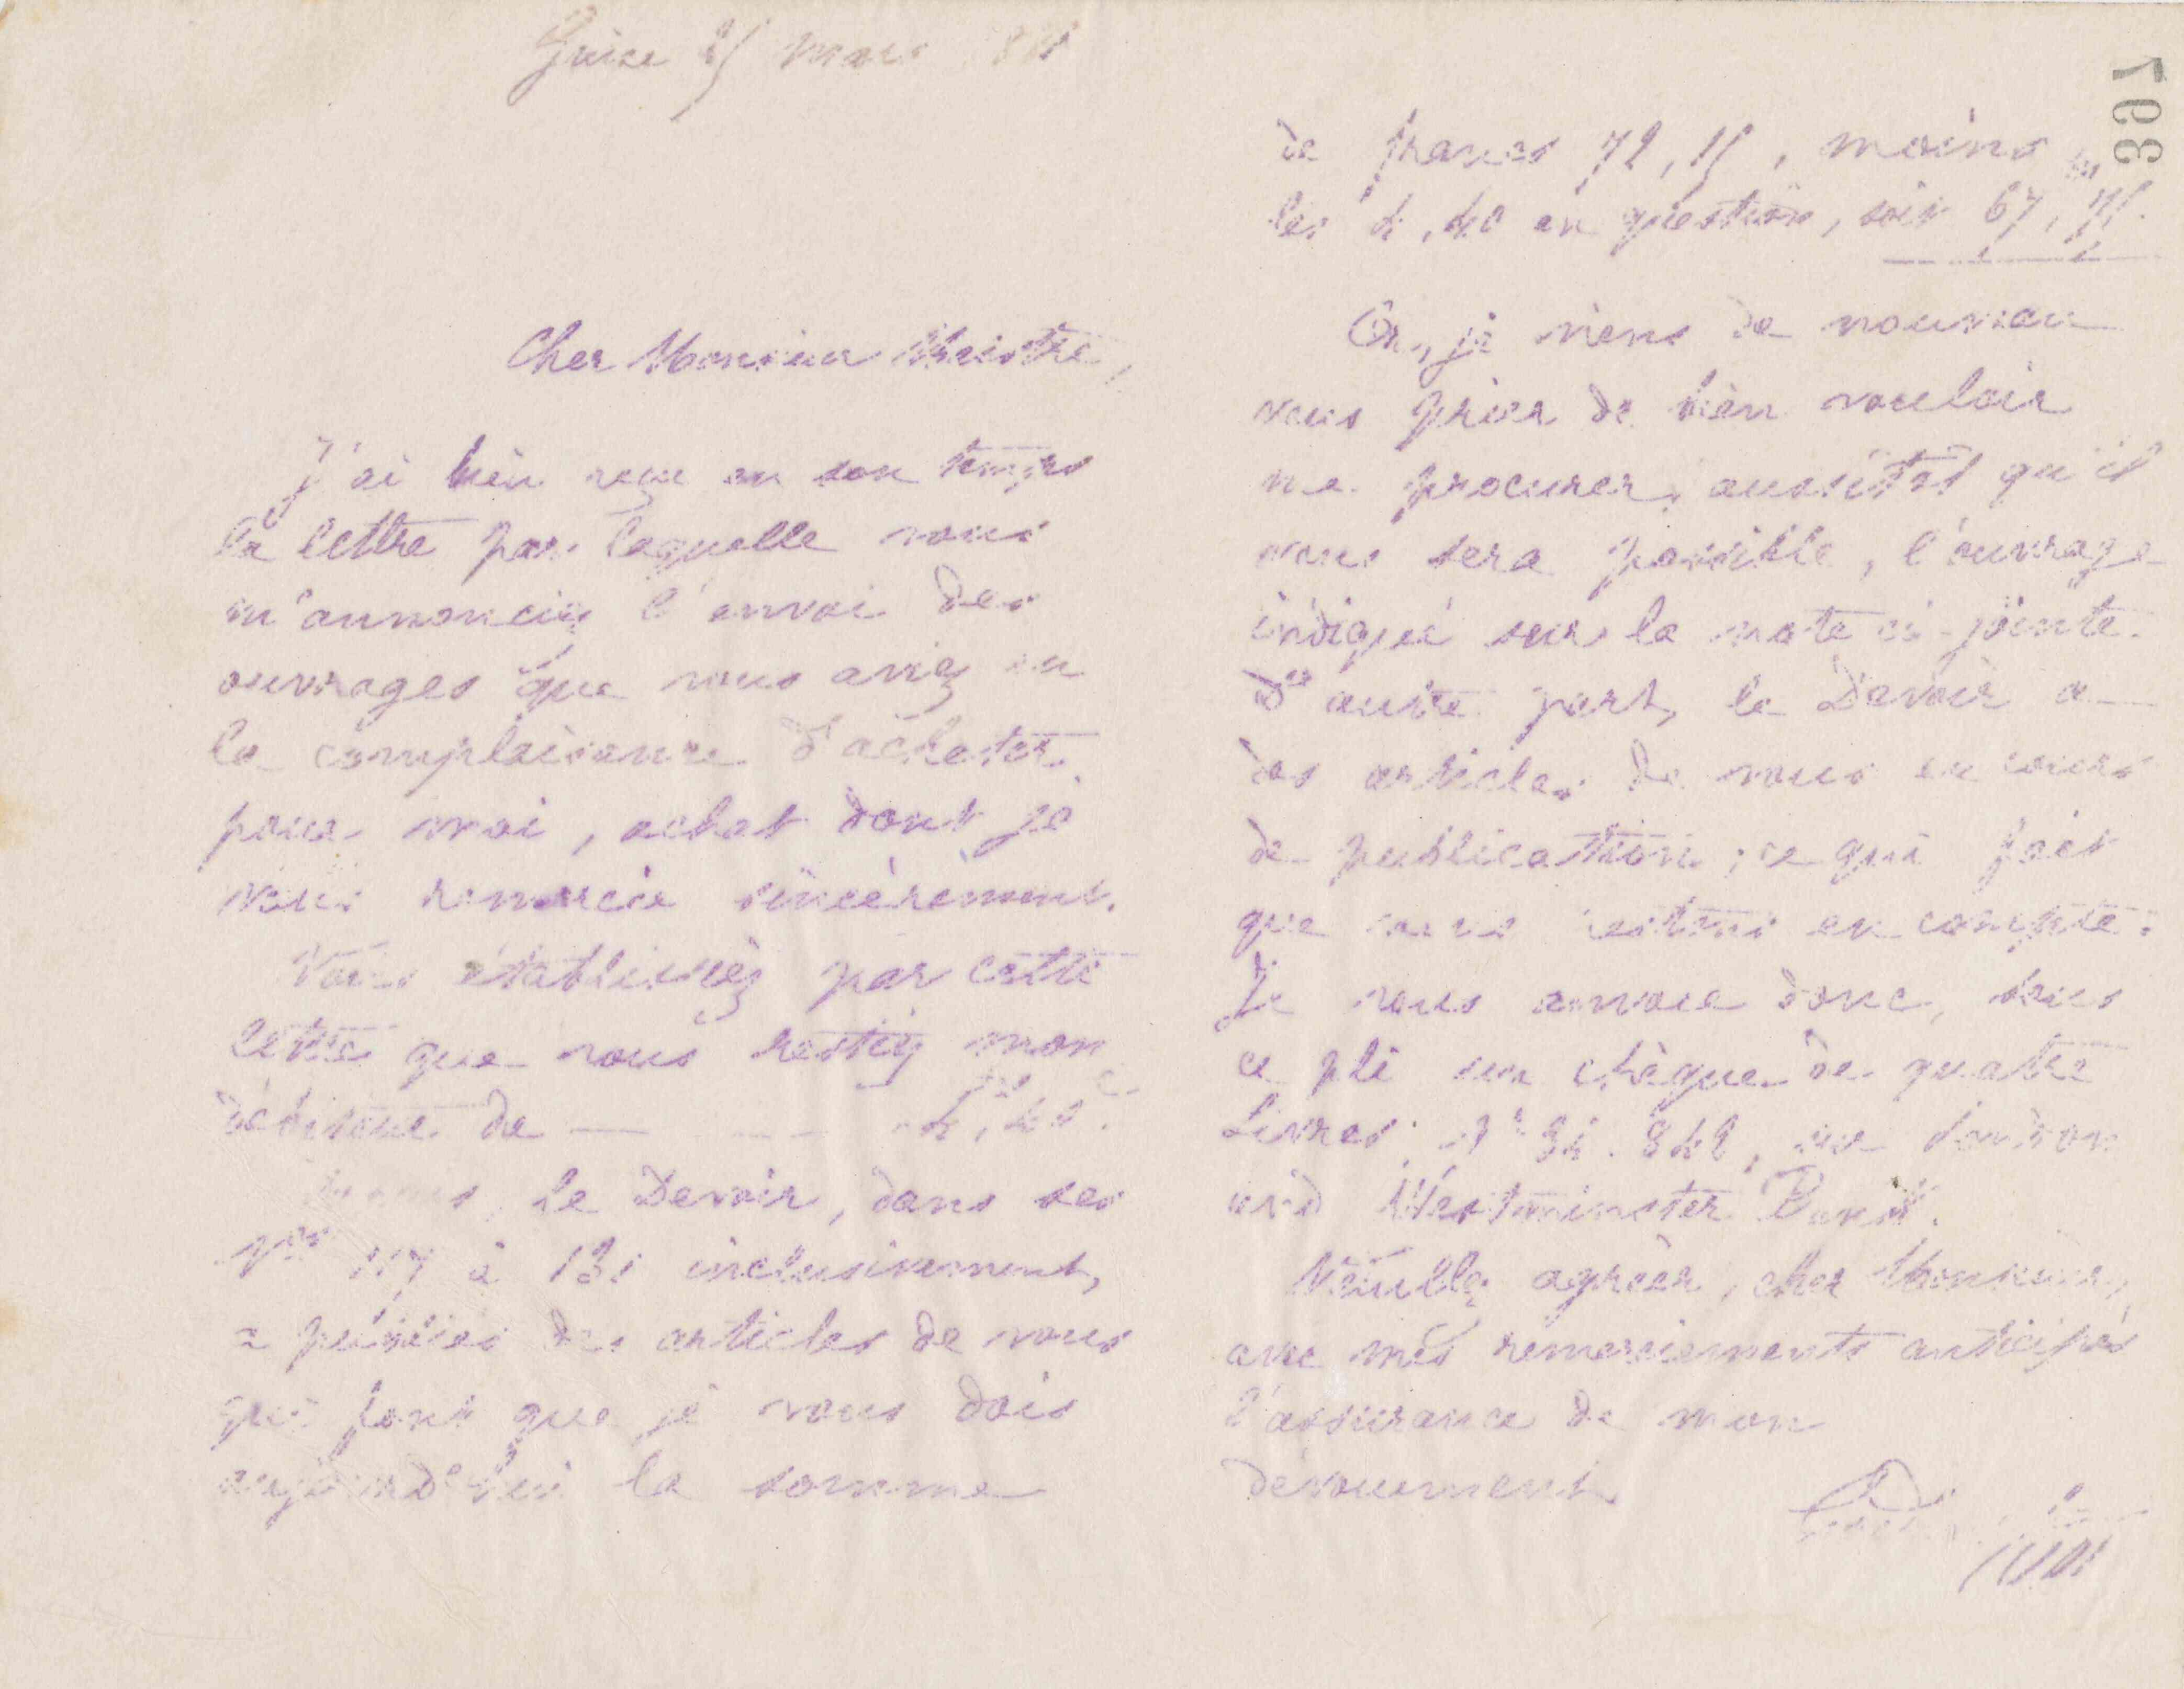 Guise 25 mars 81
Cher Monsieur Maistre,
J'ai bien reçu en son temps
la lettre par laquelle vous
m'annonciez l'envoi des
ouvrages que vous aviez eu
la complaisance d'acheter
pour moi, achat dont je
vous remercie sincèrement.
Vous établissiez par cette
lettre que vous restiez mon
débiteur de
le Devoir, dans ses
Nos 117 à 131 inclusivement,
a publié des articles de vous
qui font que je vous dois
aujourd'hui la somme
de francs 72,15, moins
les 4,40 en question, soit 67,75.
Or, je viens de nouveau
vous prier de bien vouloir
me procurer, aussitôt qu'il
vous sera possible, l'ouvrage
indiqué sur la note ci-jointe.
D'autre part, le Devoir a
des articles de vous en cours
de publication; ce qui fait
que nous restons en compte.
Je vous envoie donc, sous
ce pli un chèque de quatre
Livres, No 34.842, sur London
and Westminster Bank.
Veuillez agréer, cher Monsieur,
avec mes remerciements anticipés
l'assurance de mon
dévouement
307